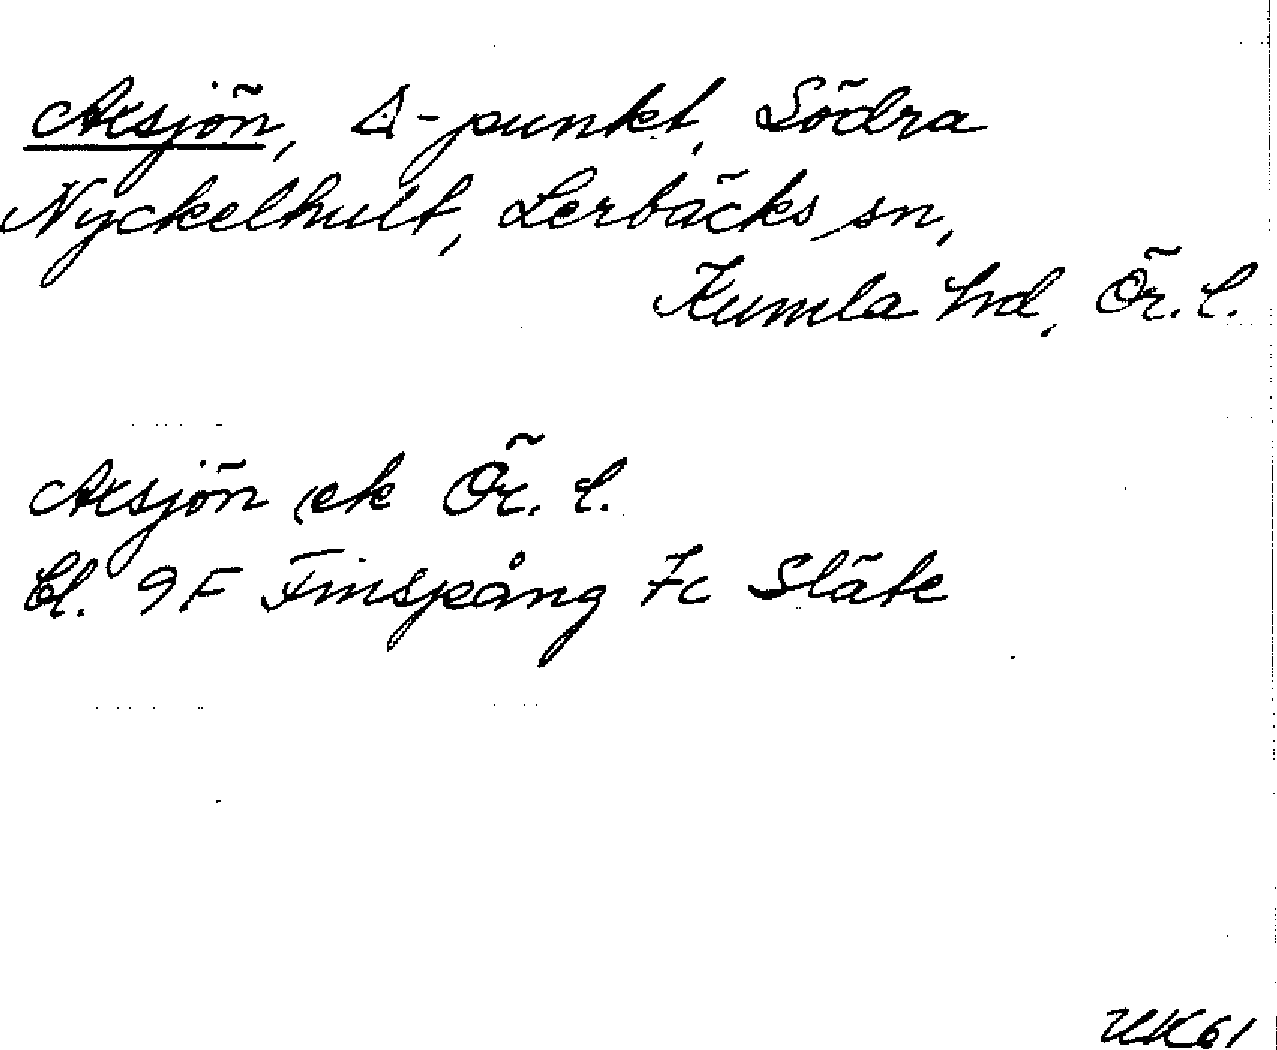 Aksjön, Δ-punkt, Södra
Nyckelhult, Lerbäcks sn,
Kumla hd, Ör. l.
Aksjön ek Ör. l.
Bl. 9F Finspång 7c Släte
UK61